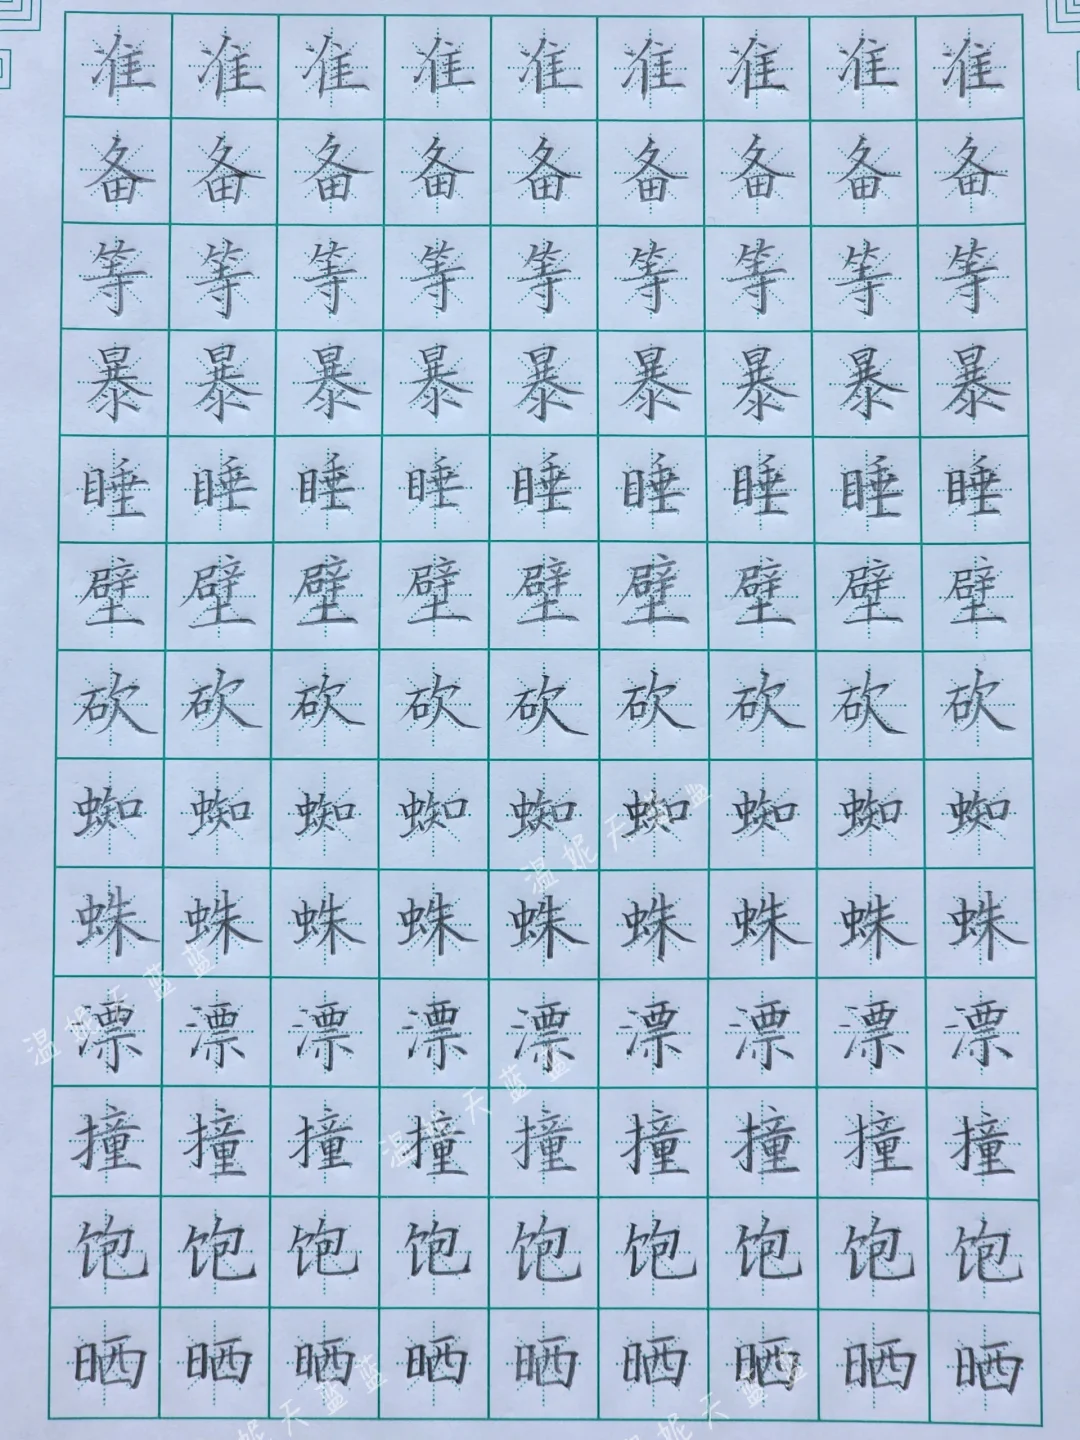 准准准准准准准准准
备备备备备备备备备
等等等等等等等等等
暴暴暴暴暴暴暴暴暴
睡睡睡睡睡睡睡睡睡
壁壁壁壁壁壁壁壁壁
砍砍砍砍砍砍砍砍砍
蜘蜘蜘蜘蜘蜘蜘蜘蜘
温妮天蓝蓝
蛛蛛蛛蛛蛛蛛蛛蛛蛛
温妮天蓝蓝
漂漂漂漂漂漂漂漂漂
温妮天蓝蓝
撞撞撞撞撞撞撞撞撞
饱饱饱饱饱饱饱饱饱
晒晒晒晒晒晒晒晒晒
妮天蓝蓝
妮天蓝蓝